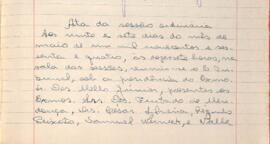 Ata da sessão ordinária
Aos vinte e sete dias do mês de
maio de um mil novecentos e ses-
senta e quatro, às dezesseis horas, na
sala das sessões, reuniu-se o E. Tri-
bunal, sob a presidência do Exmo.
Sr. Des. Mello Júnior, presentes os
Exmos. Srs. Des. Furtado de Men-
donça, Drs. César
Peixoto, Samuel e